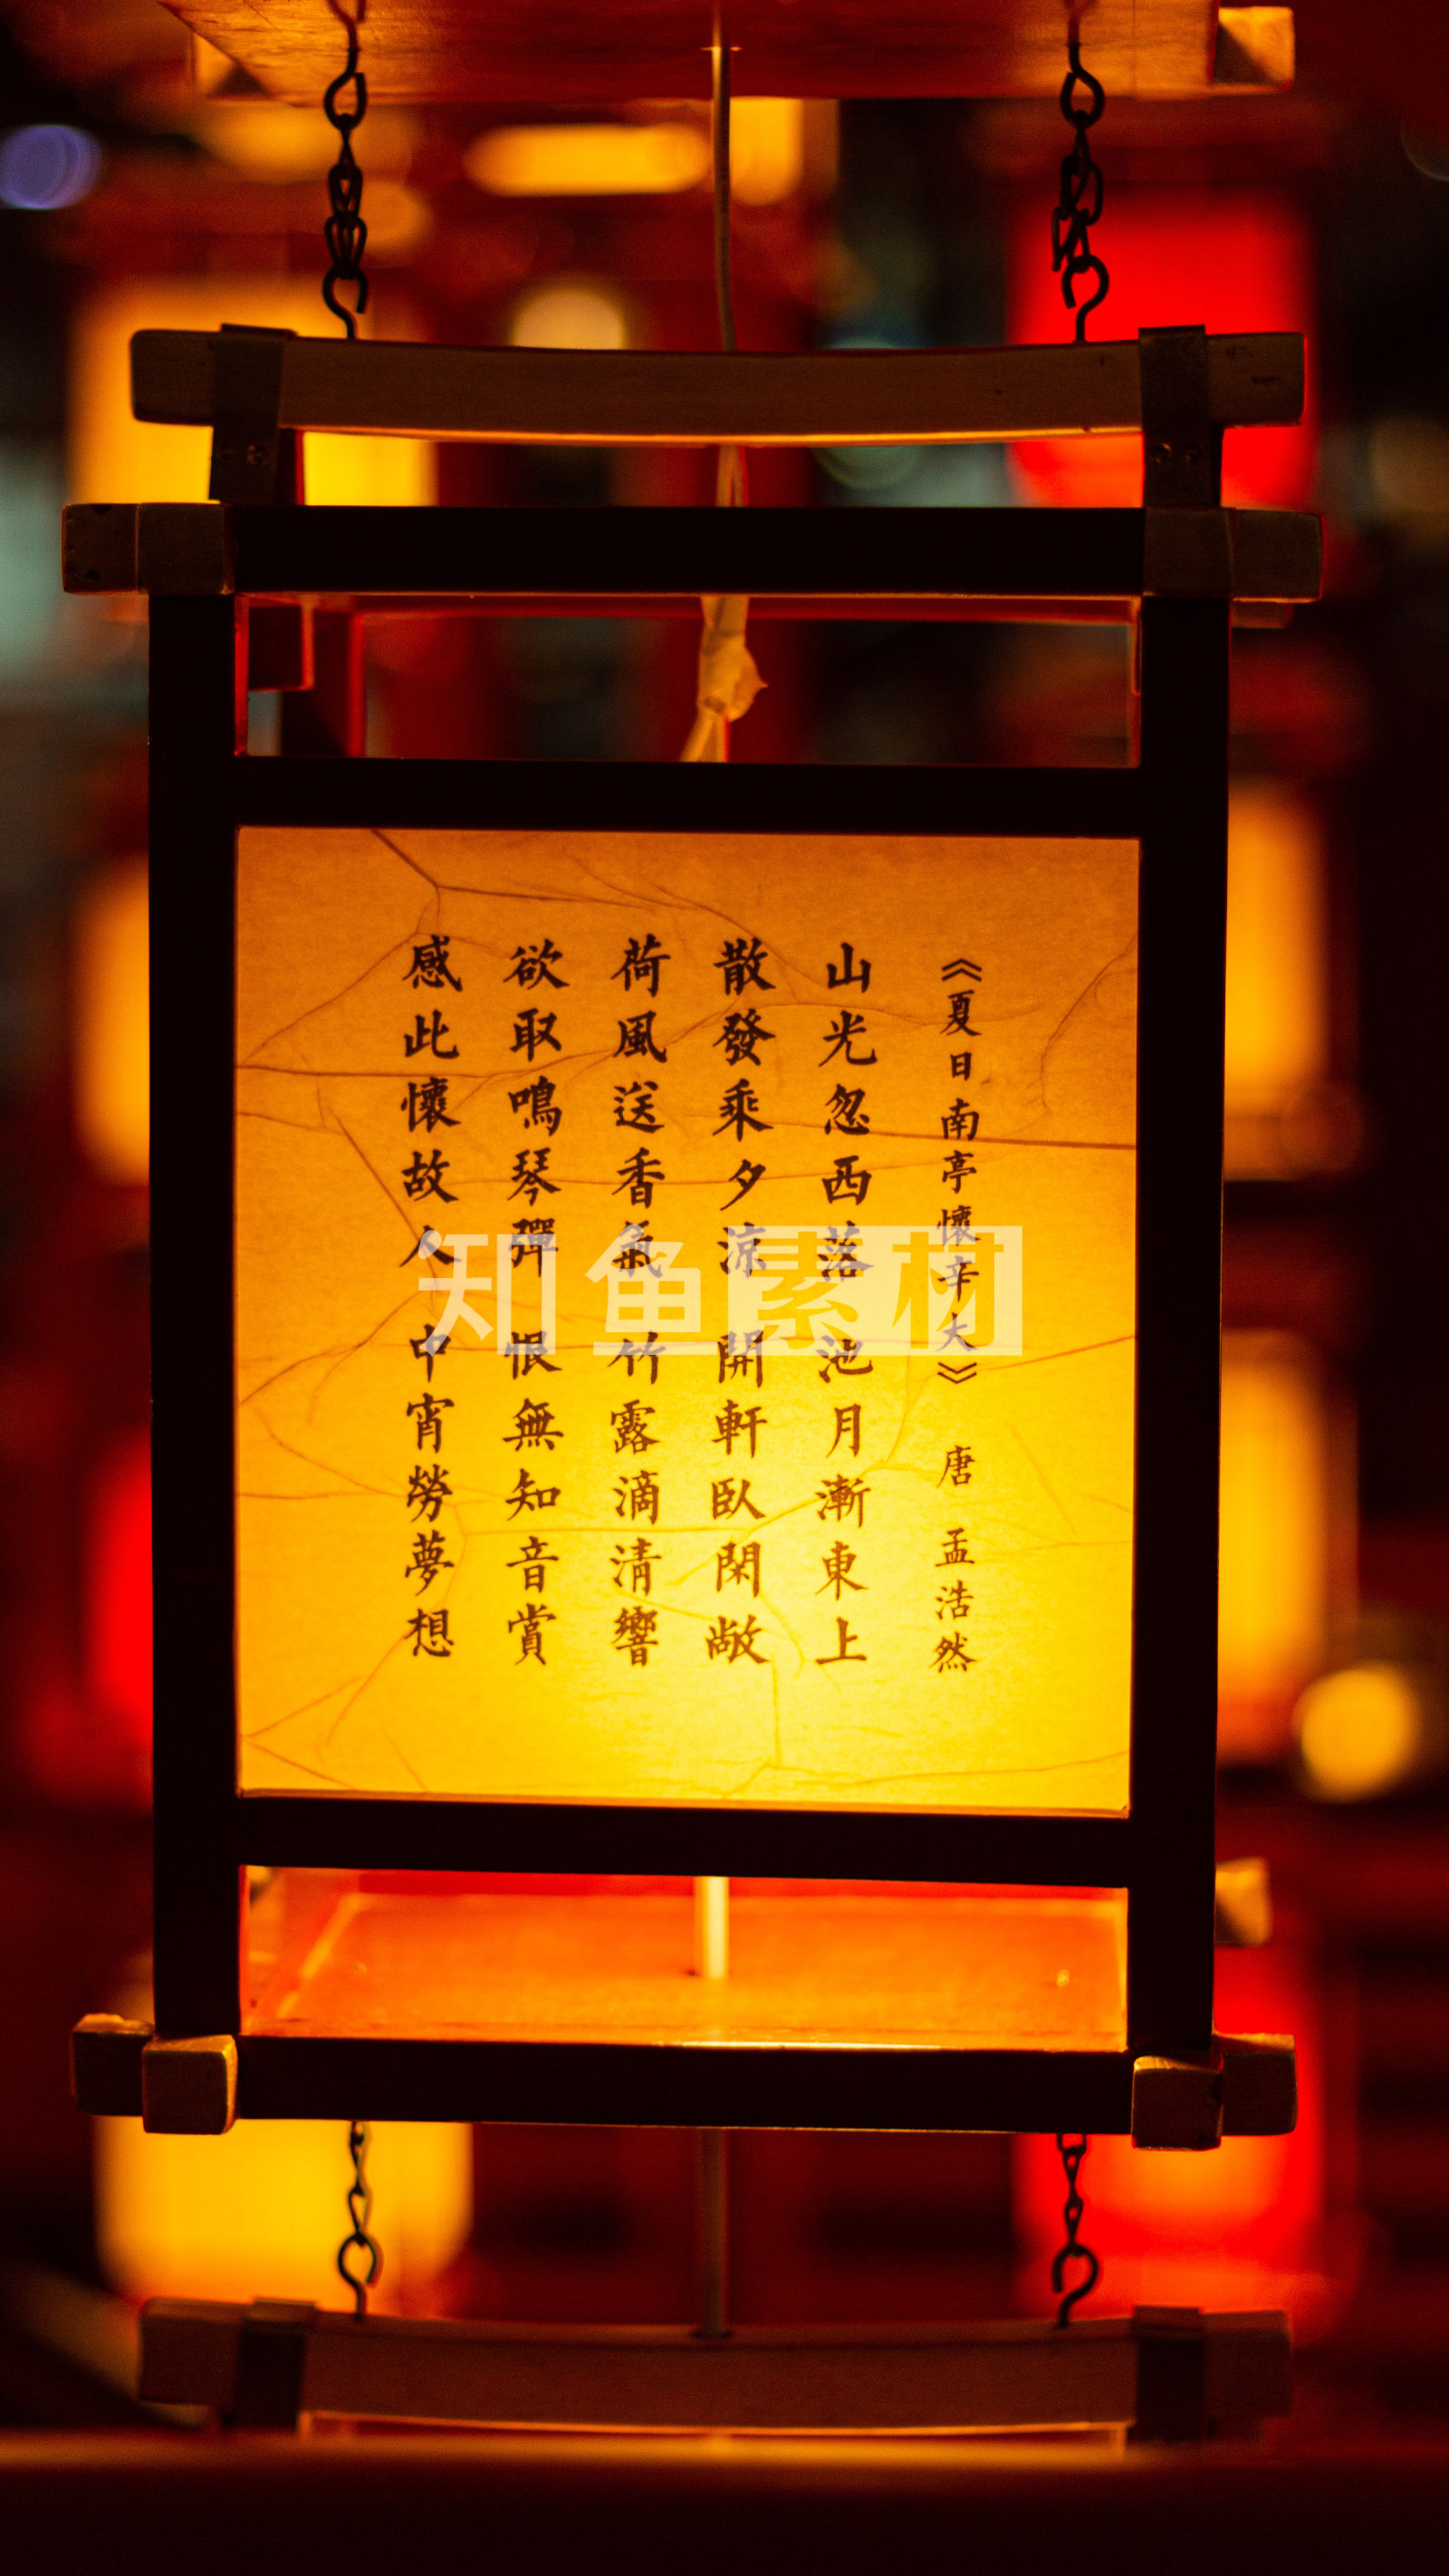 《夏日南亭懷辛大》 唐 孟浩然
山光忽西落 池月漸東上
散發乘夕涼 開軒臥閑敞
荷風送香氣 竹露滴清響
欲取鳴琴彈 恨無知音賞
感此懷故人 中宵勞夢想
知鱼素材